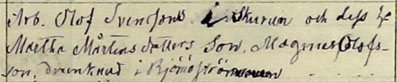 Arb. Olof Svensons i Skurun och dess h
Martha Mårtens dotters Son. Magnus Olofs-
son, drunknad i